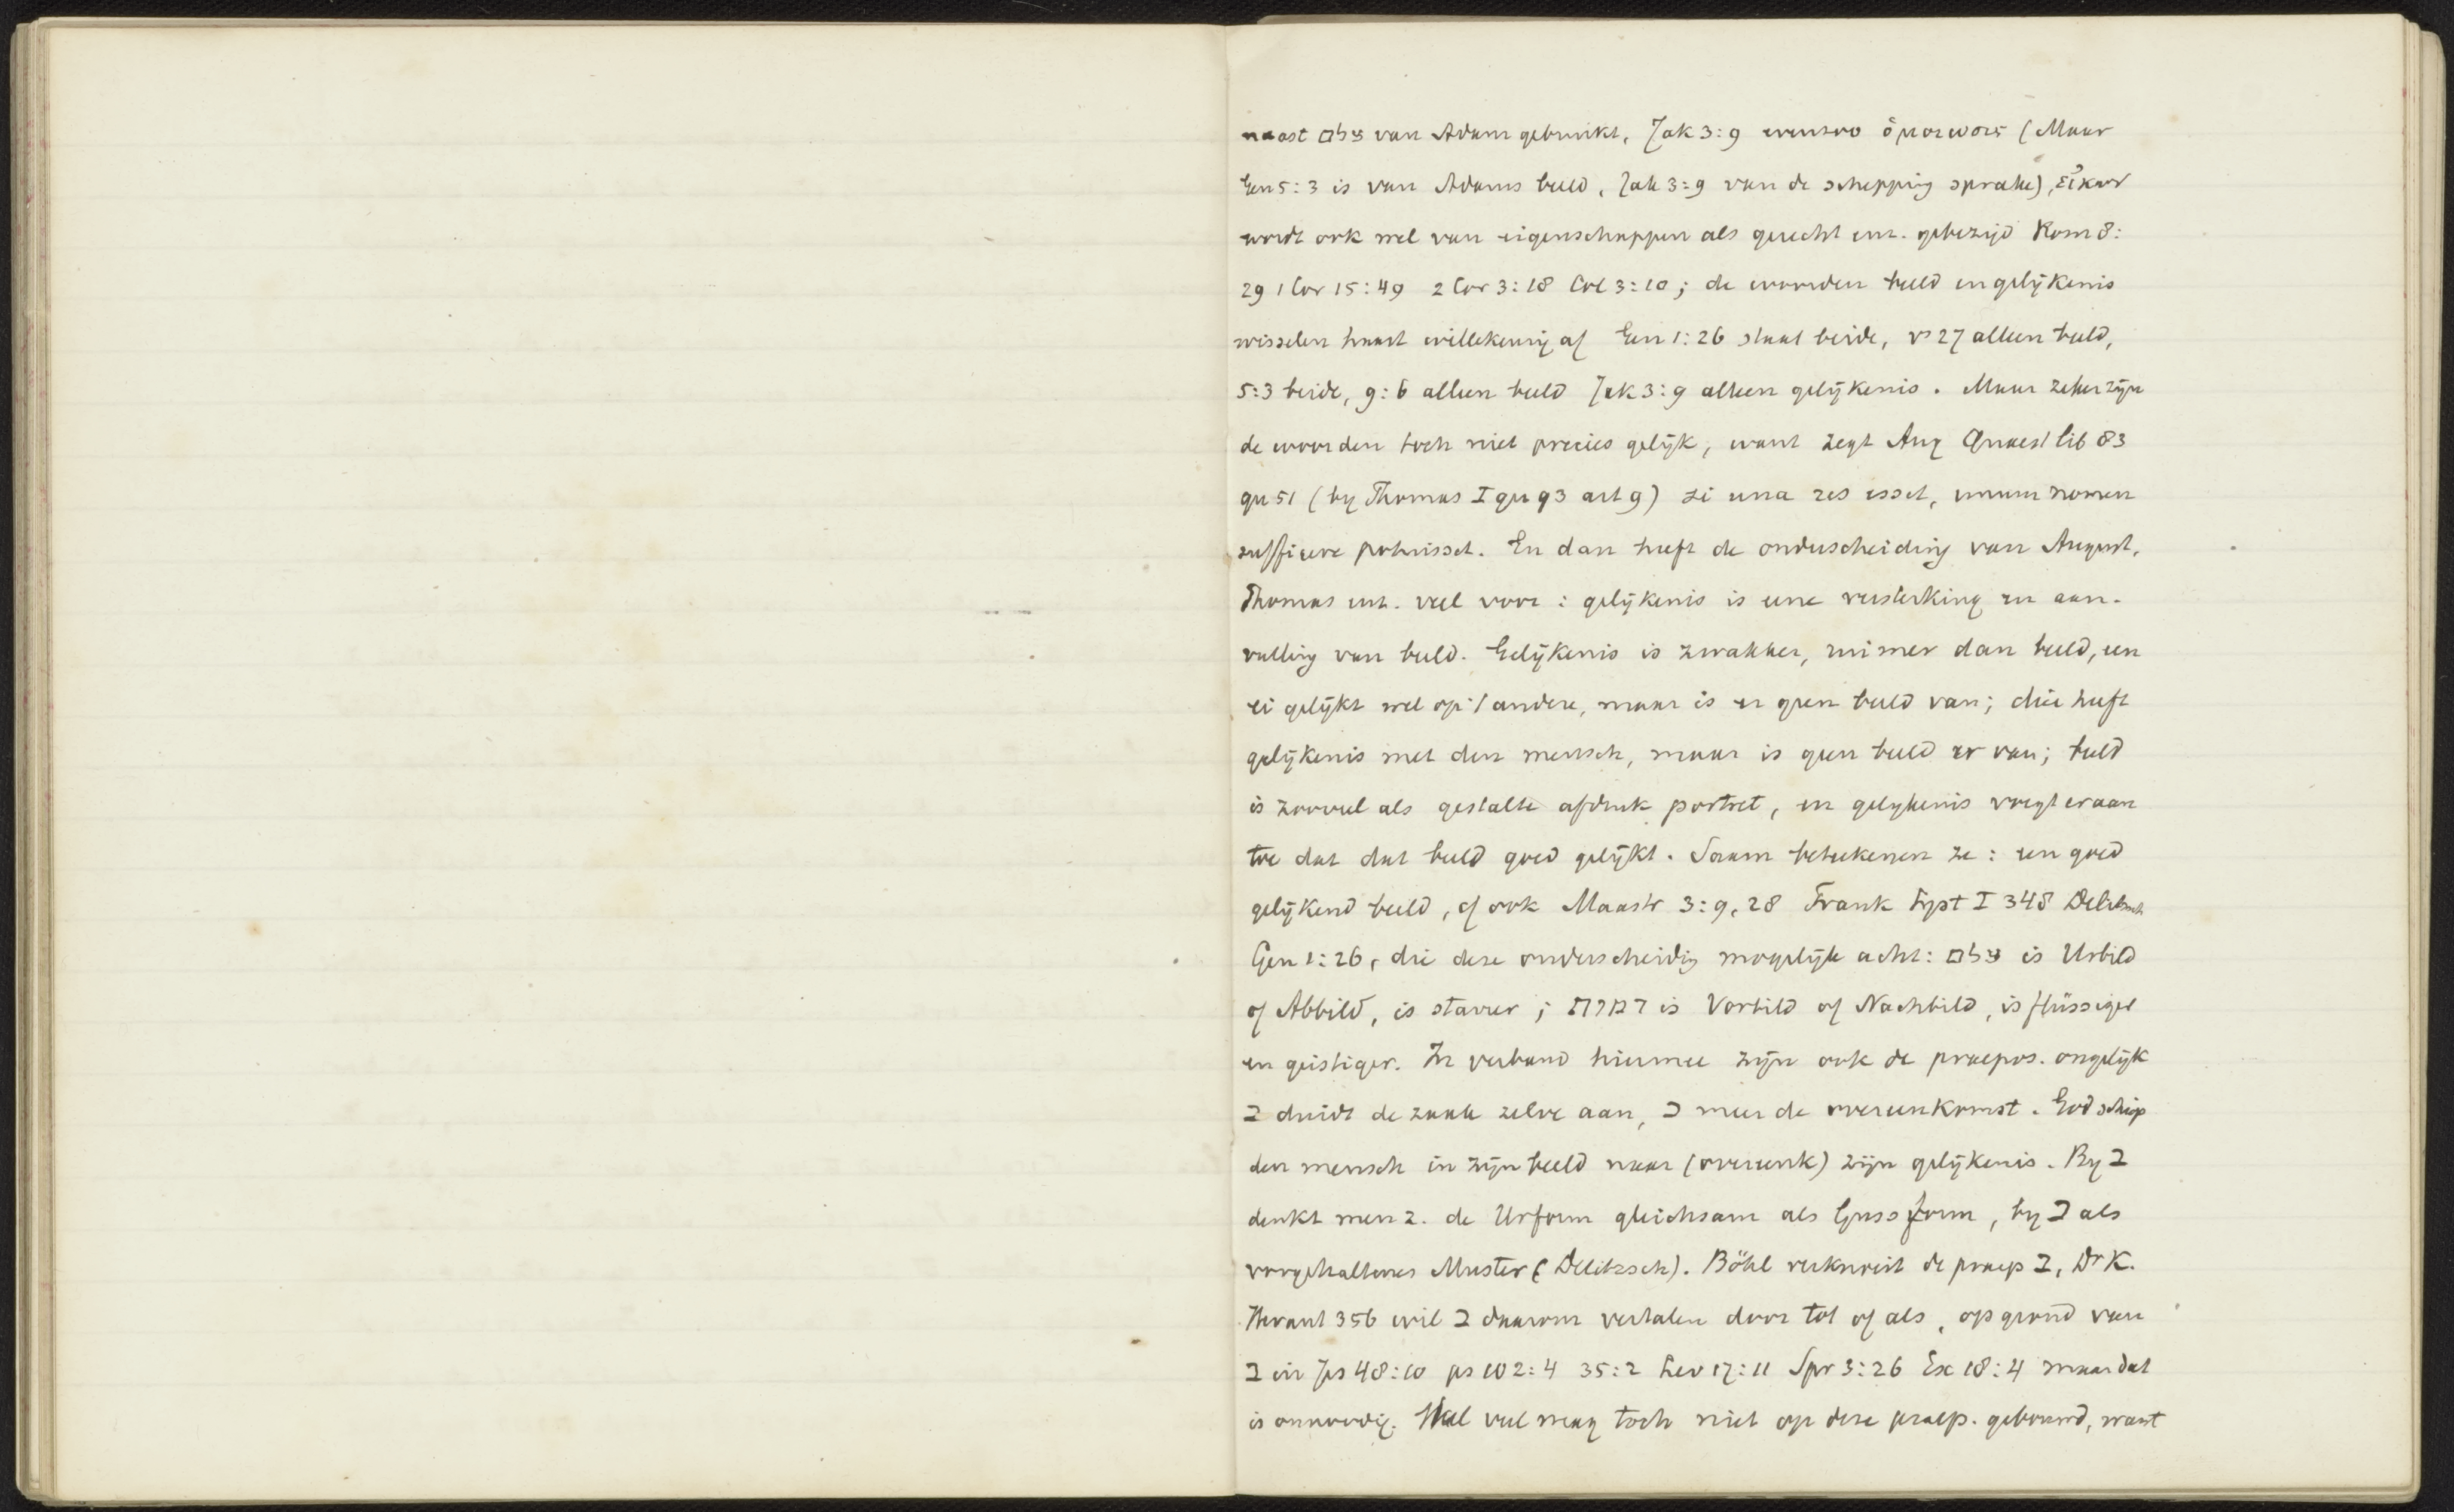 naast צלם van Adam gebruikt, Jak 3:9 evenzoo ὁμοιωσις (Maar
Gen 5:3 is van Adams beeld, Jak 3:9 van de schepping sprake), εἰκων
wordt ook wel van eigenschappen als gerecht enz. gebezigd Rom 8:
29 1 Cor 15:49 2 Cor 3:18 Col 3:10; de woorden beeld en gelijkenis
wisselen haast willekeurig af Gen 1:26 staat beide, vs 27 alleen beeld,
5:3 beide, 9:6 alleen beeld Jak 3:9 alleen gelijkenis. Maar zeker zijn
de woorden toch niet precies gelijk, want zegt Aug Quaest lib 83
qu 51 (by Thomas I qu 93 art 9) si una res esset, unum nomen
sufficere potuisset. En dan heeft de onderscheiding van August.
Thomas enz. veel voor: gelijkenis is eene versterking en aan-
vulling van beeld. Gelijkenis is zwakker, ruimer dan beeld, een
ei gelijkt wel op 't andere, maar is er geen beeld van; dier heeft
gelijkenis met den mensch, maar is geen beeld er van; beeld
is zooveel als gestalte afdruk portret, en gelykenis voegt eraan
toe dat dat beeld goed gelijkt. Saam beteekenen ze: een goed
gelijkend beeld, cf ook Mastr 3:9,28 Frank Syst I 348 Delitzsch
Gen 1:26, die deze onderscheidig mogelijk acht: צלם is Urbild
of Abbild, is starrer; דמות is Vorbild of Nachbild, is flüssiger
en geistiger. In verband hiermee zijn ook de praepos. ongelijk
ב duidt de zaak zelve aan, כ meer de overeenkomst. God schiep
den mensch in zijn beeld naar (overeenk) zijn gelijkenis. By ב
denkt men z. de Urform gleichsam als Gussform, by כ als
vorgehaltenes Muster (Delitzsch). Böhl verknoeit de praep ב, Dr K.
Heraut 356 wil ב daarom vertalen door tot of als, op grond van
ב in Jes 48:10 ps 102:4 35:2 Lev 17:11 Spr 3:26 Ex 18:4 maar dat
is onnoodig. Heel veel mag toch niet op deze praep. gebouwd, want